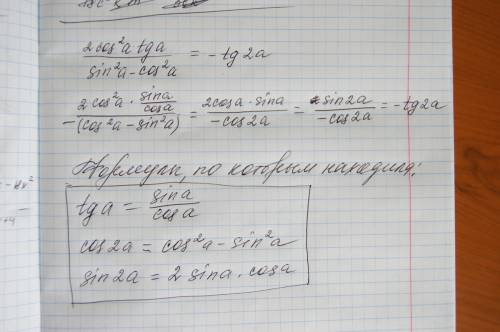 2cos²a tga / sin²a - cos²a = -tg2a
2cos²a · sina/cosa / -(cos²a - sin²a) = 2cosa · sina / -cos2a = sin2a / -cos2a = -tg2a
Формулы, по которым находила:
tga = sina/cosa
cos2a = cos²a - sin²a
sin2a = 2 sina · cosa